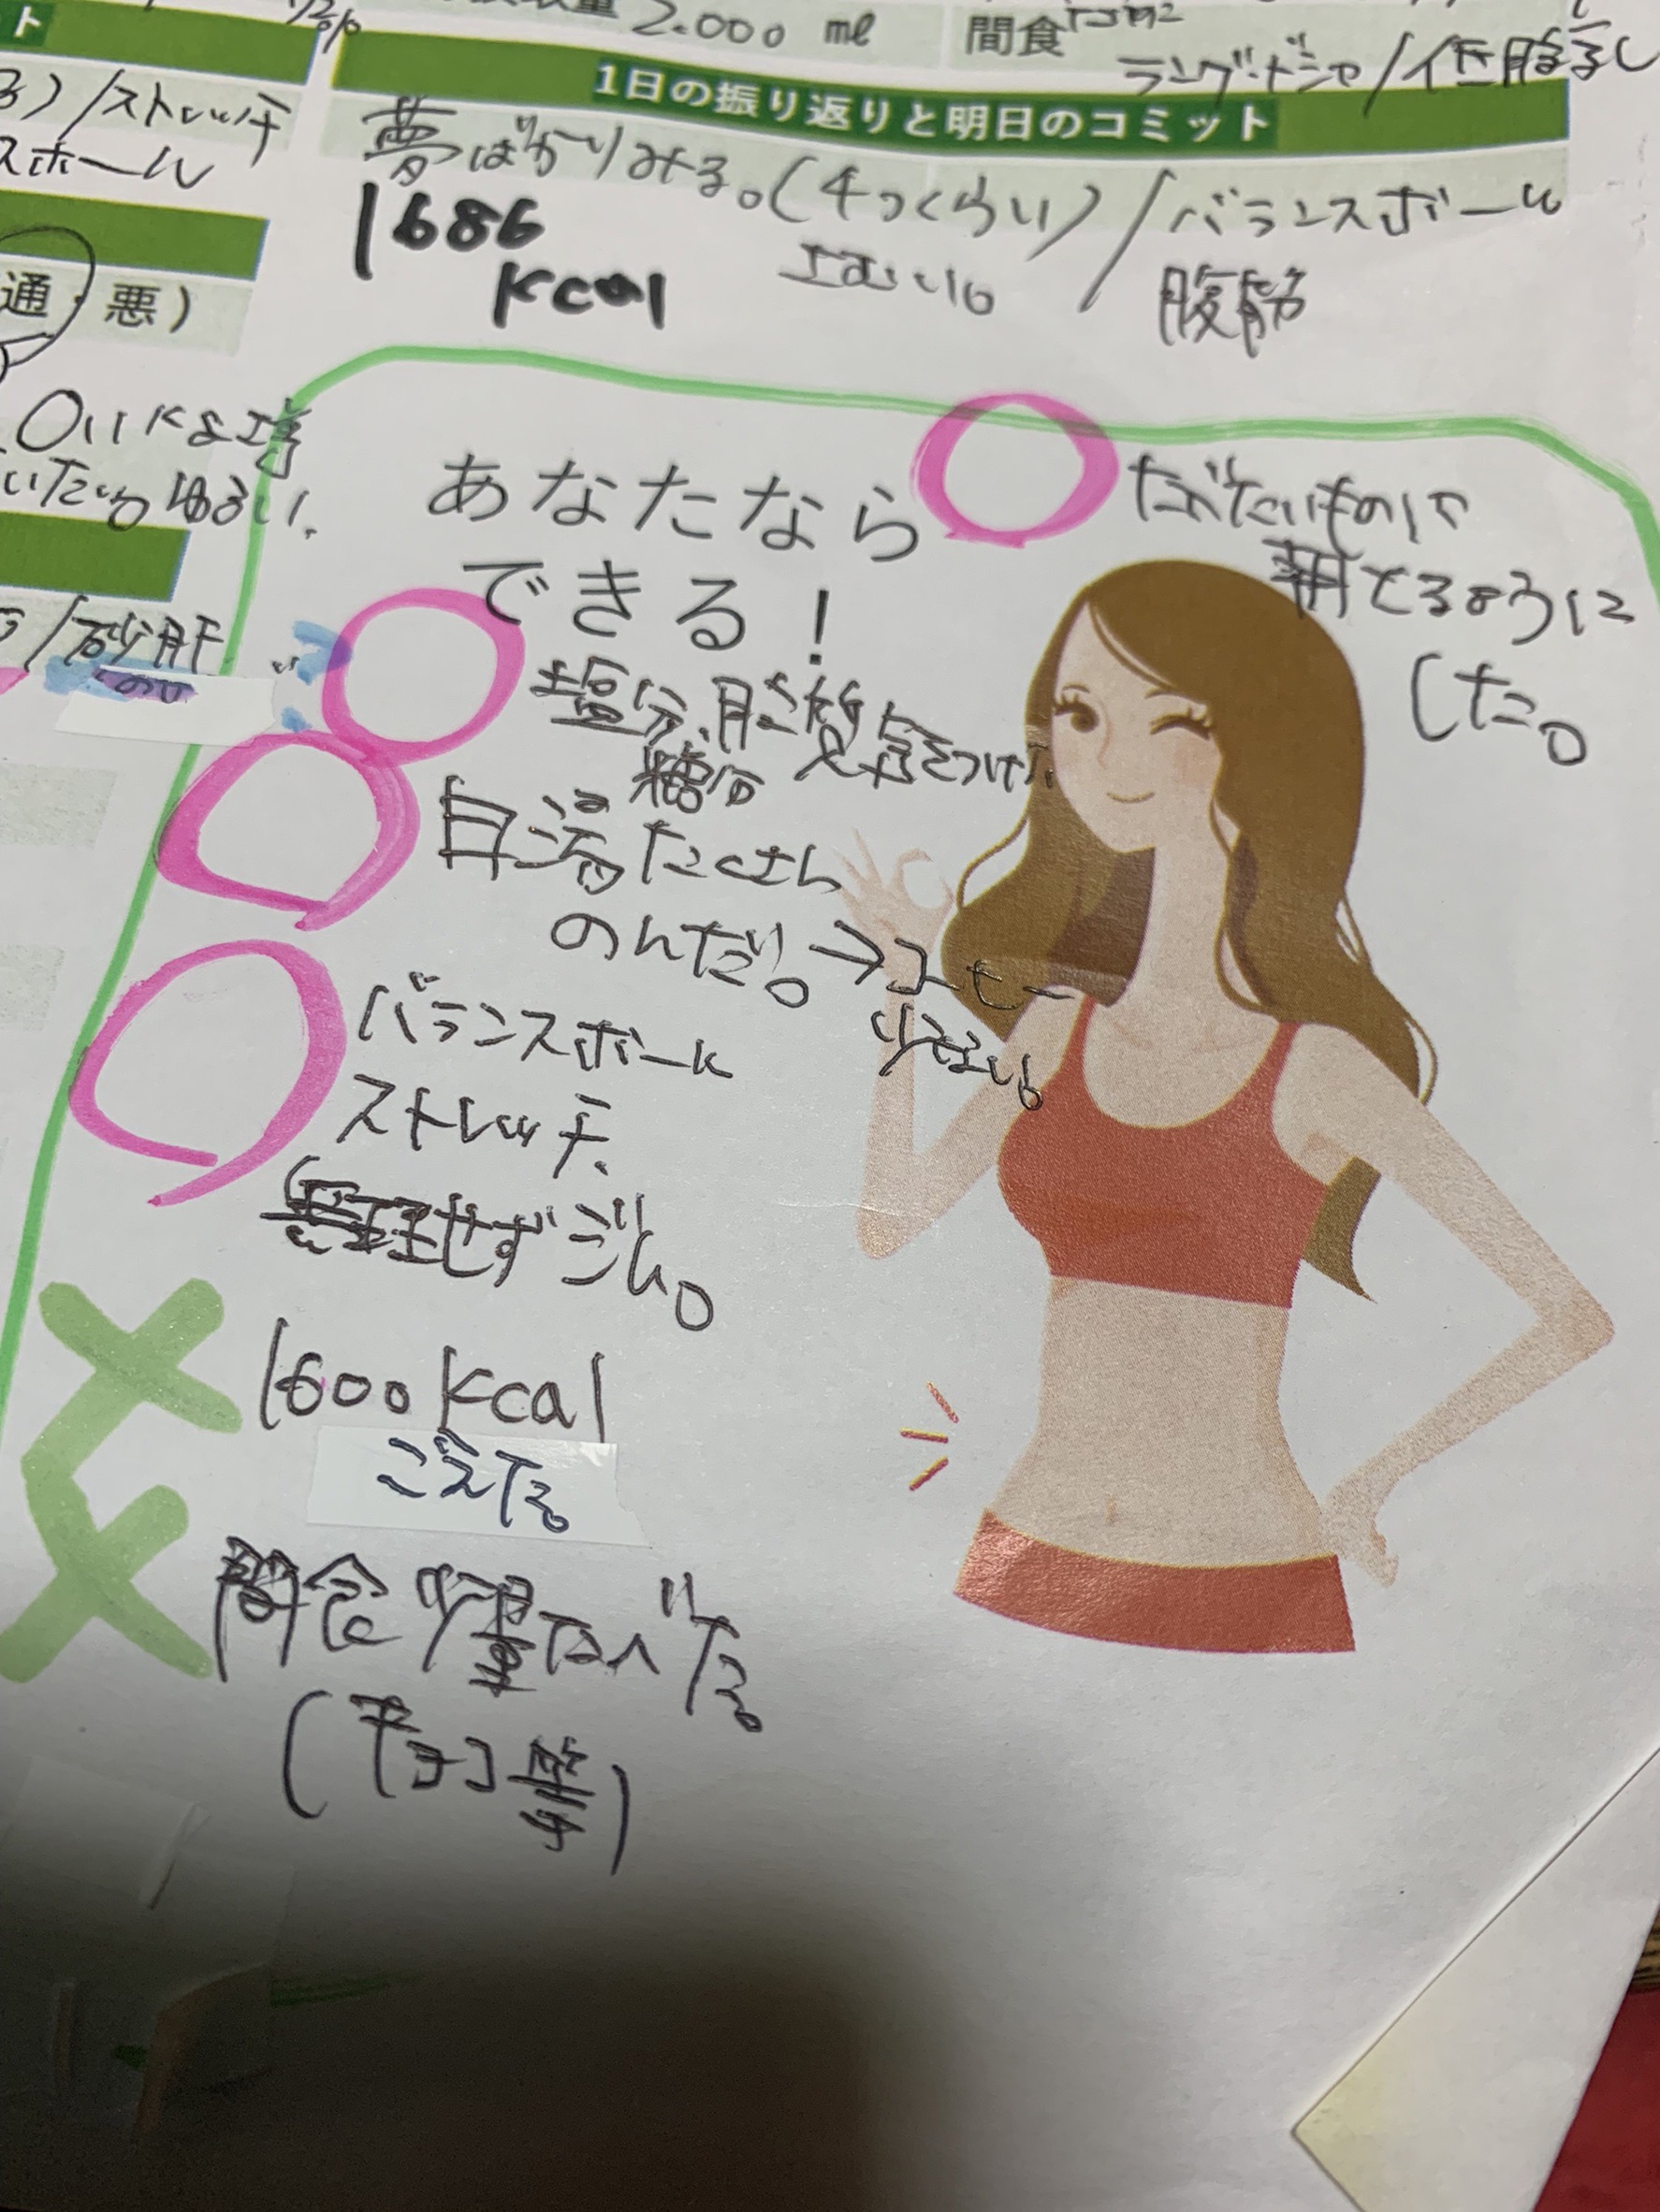 2.000 ml
間食
ラングドシャ/低脂
ト
1日の振り返りと明日のコミット
/ストレッチ
スホール
夢ばかりみる。(4つくらい)/バランスボール
1686
kcal
腹筋
通 悪)
ゆるい.
/砂肝
あなたなら
できる!
たべたいもの
朝とるように
した。
塩分、脂質
糖分 気をつけた
白湯たくさん
のんだ。→コーヒー
少ない。
バランスボール
ストレッチ、
無理せずジム。
1600kcal
こえてる。
間食少量たべてる。
(チョコ等)